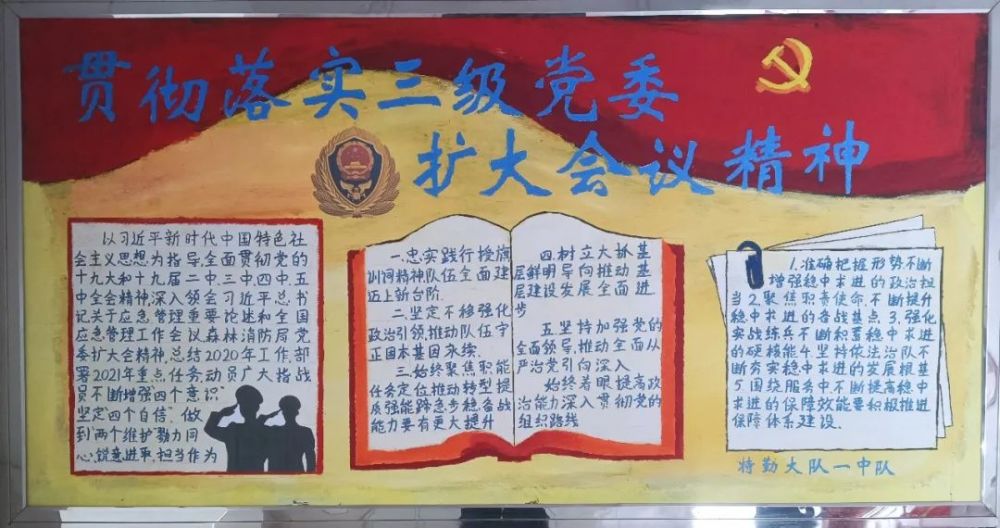 贯彻落实三级党委
扩大会议精神
以习近平新时代中国特色社
会主义思想为指导,全面贯彻党的
十九大和十九届二中、三中、四中、五
中全会精神,深入领会习近平总书
记关于应急管理重要论述和全国
应急管理工作会议、森林消防局党
委扩大会精神,总结2020年工作,部
署2021年重点任务,动员广大指战
员不断增强“四个意识”
坚定“四个自信”、做
到“两个维护”勠力同
心,锐意进取,担当作为
一.忠实践行授旗
训词精神,队伍全面建
迈上新台阶.
二.坚定不移强化
政治引领,推动队伍守
正固本基因永续.
三.始终聚焦职能
任务定位推动转型提
质强能,蹄急步稳备战
能力要有更大提升
四.树立大抓基
层鲜明导向推动基
层建设发展全面进
步
五.坚持加强党的
全面领导,推动全面从
严治党引向深入
始终着眼提高政
治能力深入贯彻党的
组织路线
1.准确把握形势,不断
增强稳中求进的政治担
当 2.聚焦职责使命,不断提升
稳中求进的备战基点 3.强化
实战练兵不断积蓄稳中求进
的硬核能 4.坚持依法治队不
断夯实稳中求进的发展根基
5.围绕服务中不断提高稳中
求进的保障效能要积极推进
保障体系建设.
特勤大队一中队